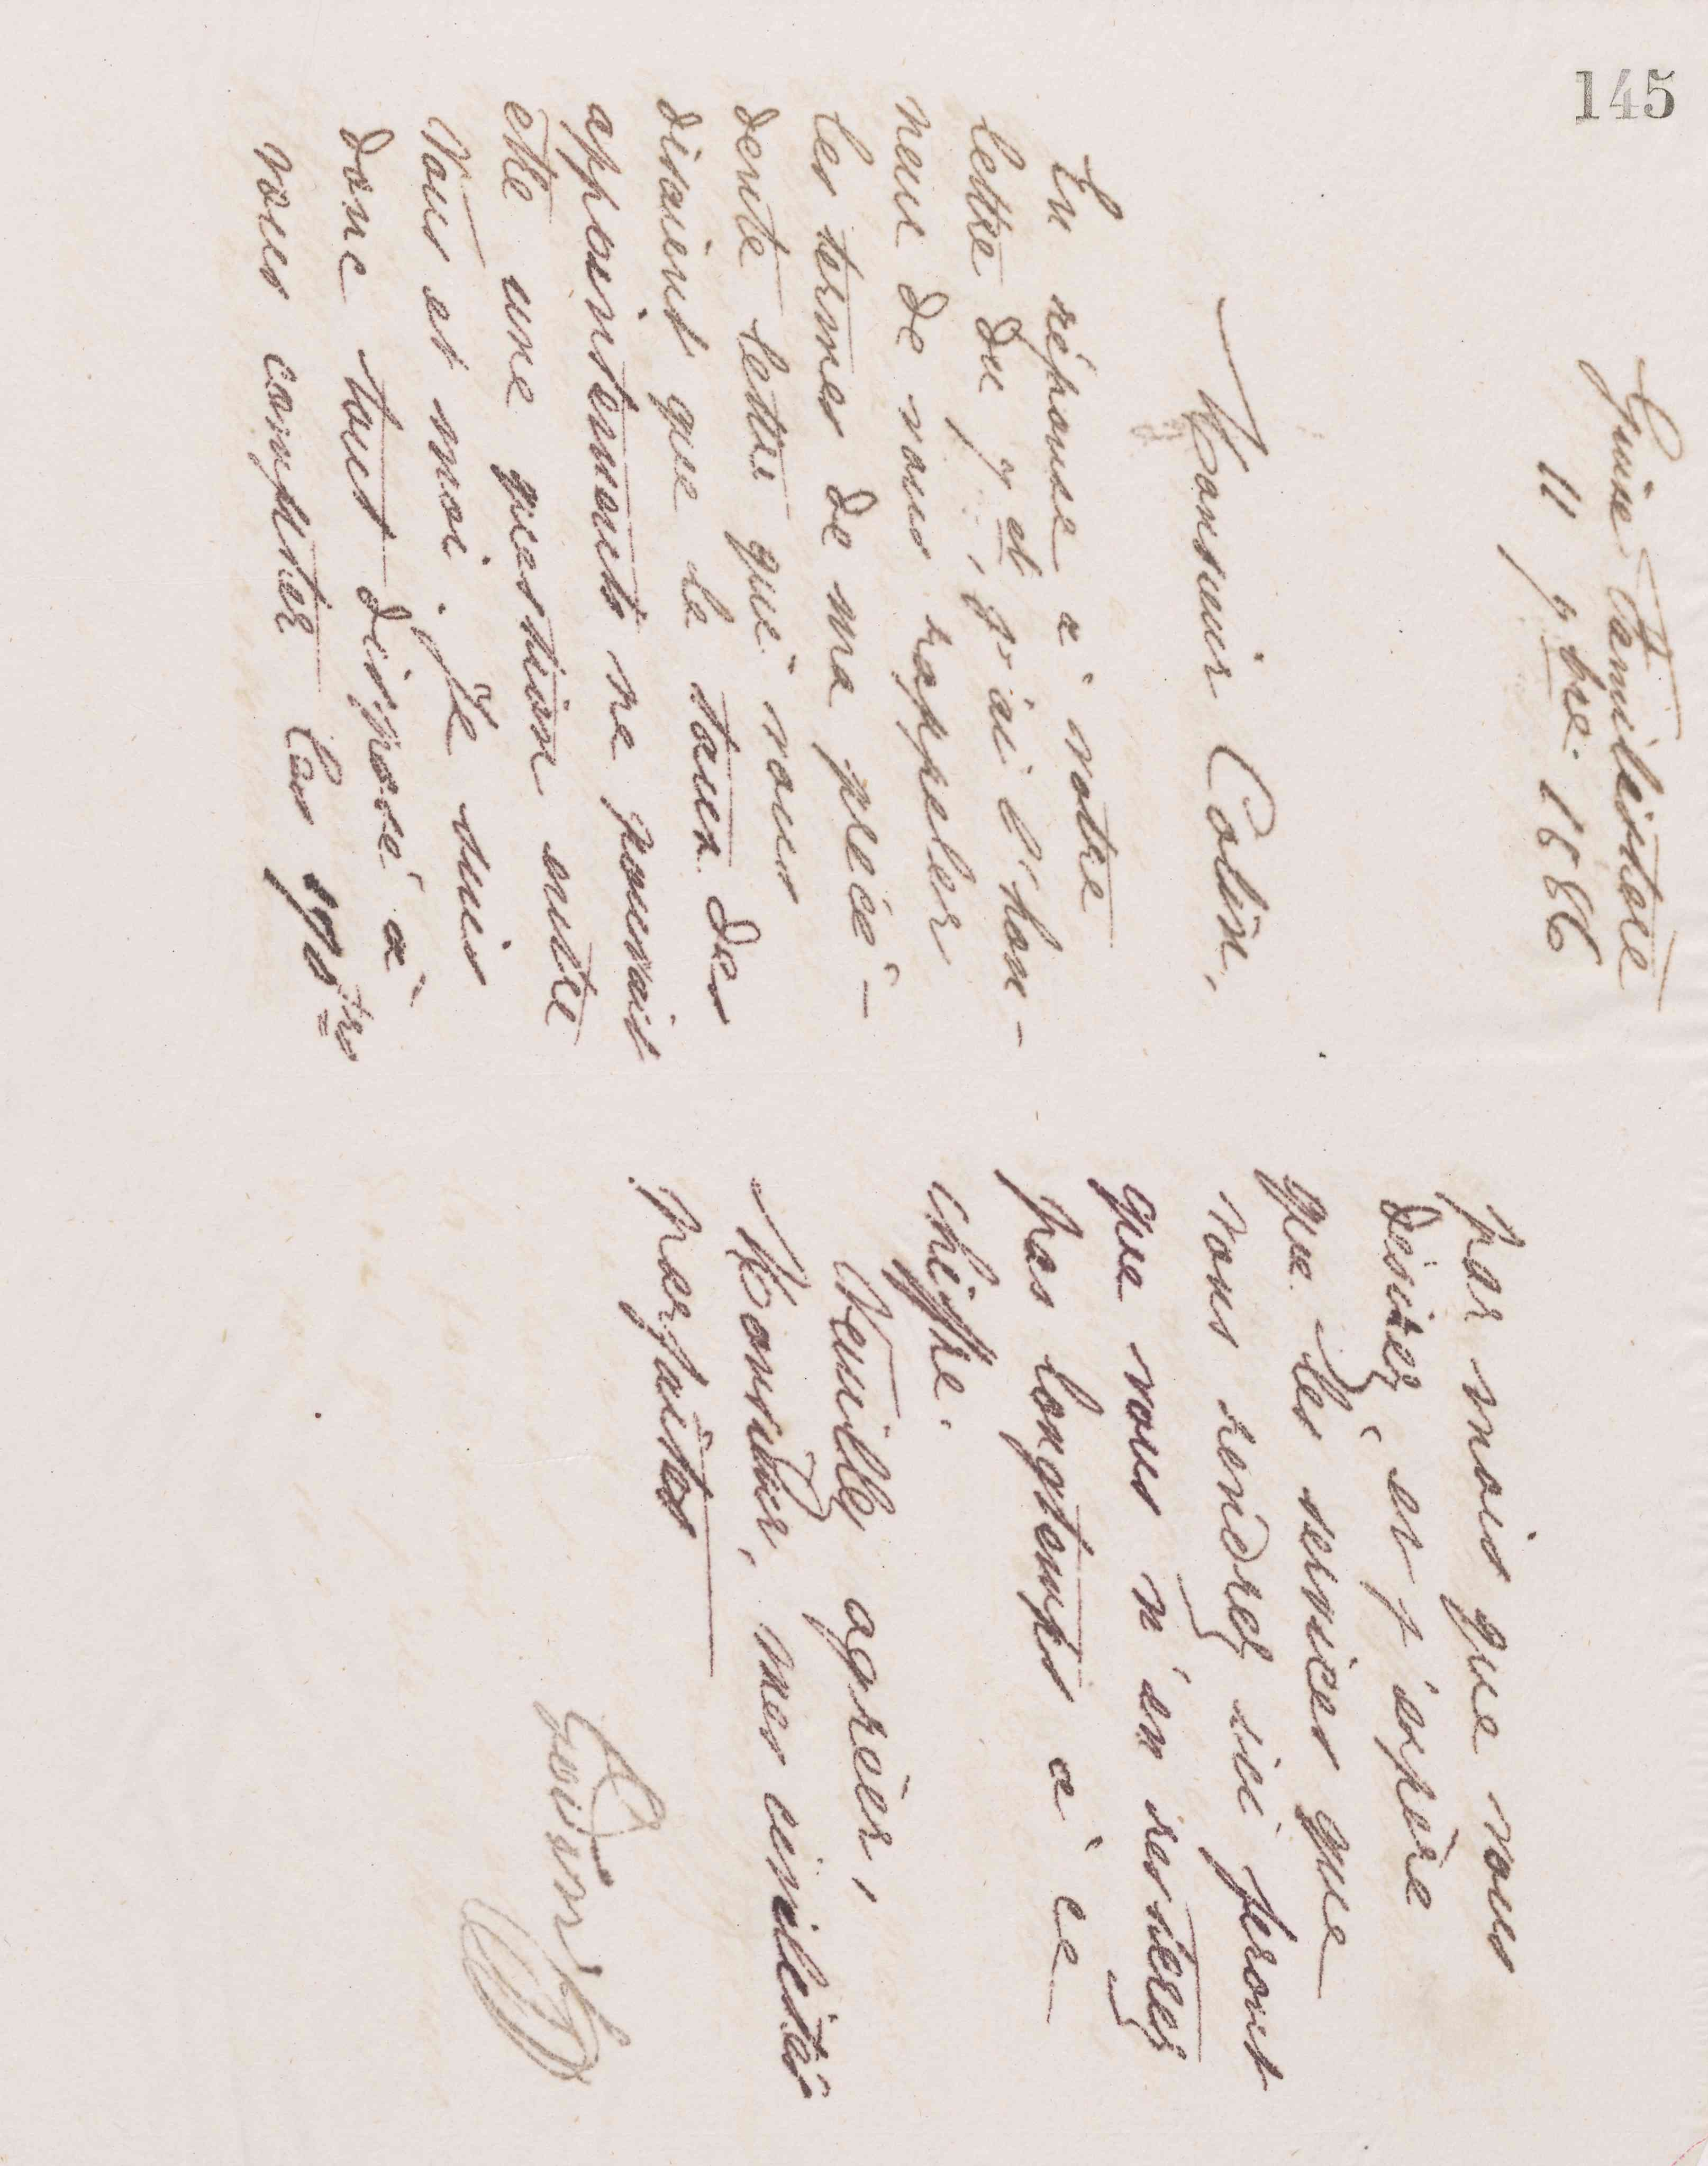 145
Guise Familistère
11 9bre 1886
Monsieur Colin,
En réponse à votre
lettre du 9 ct, j'ai l'hon-
neur de vous rappeler
les termes de ma précé-
dente lettre qui vous
disaient que le taux des
appointements ne pouvait
être une question entre
Vous et moi. Je suis
donc tout disposé à
vous compter les
par mois que vous
désirez, et j'espère
que les services que
vous rendrez ici feront
que vous n'en resterez
pas longtemps à ce
chiffre.
Veuillez agréer,
Monsieur, mes civilités
parfaites
Godin